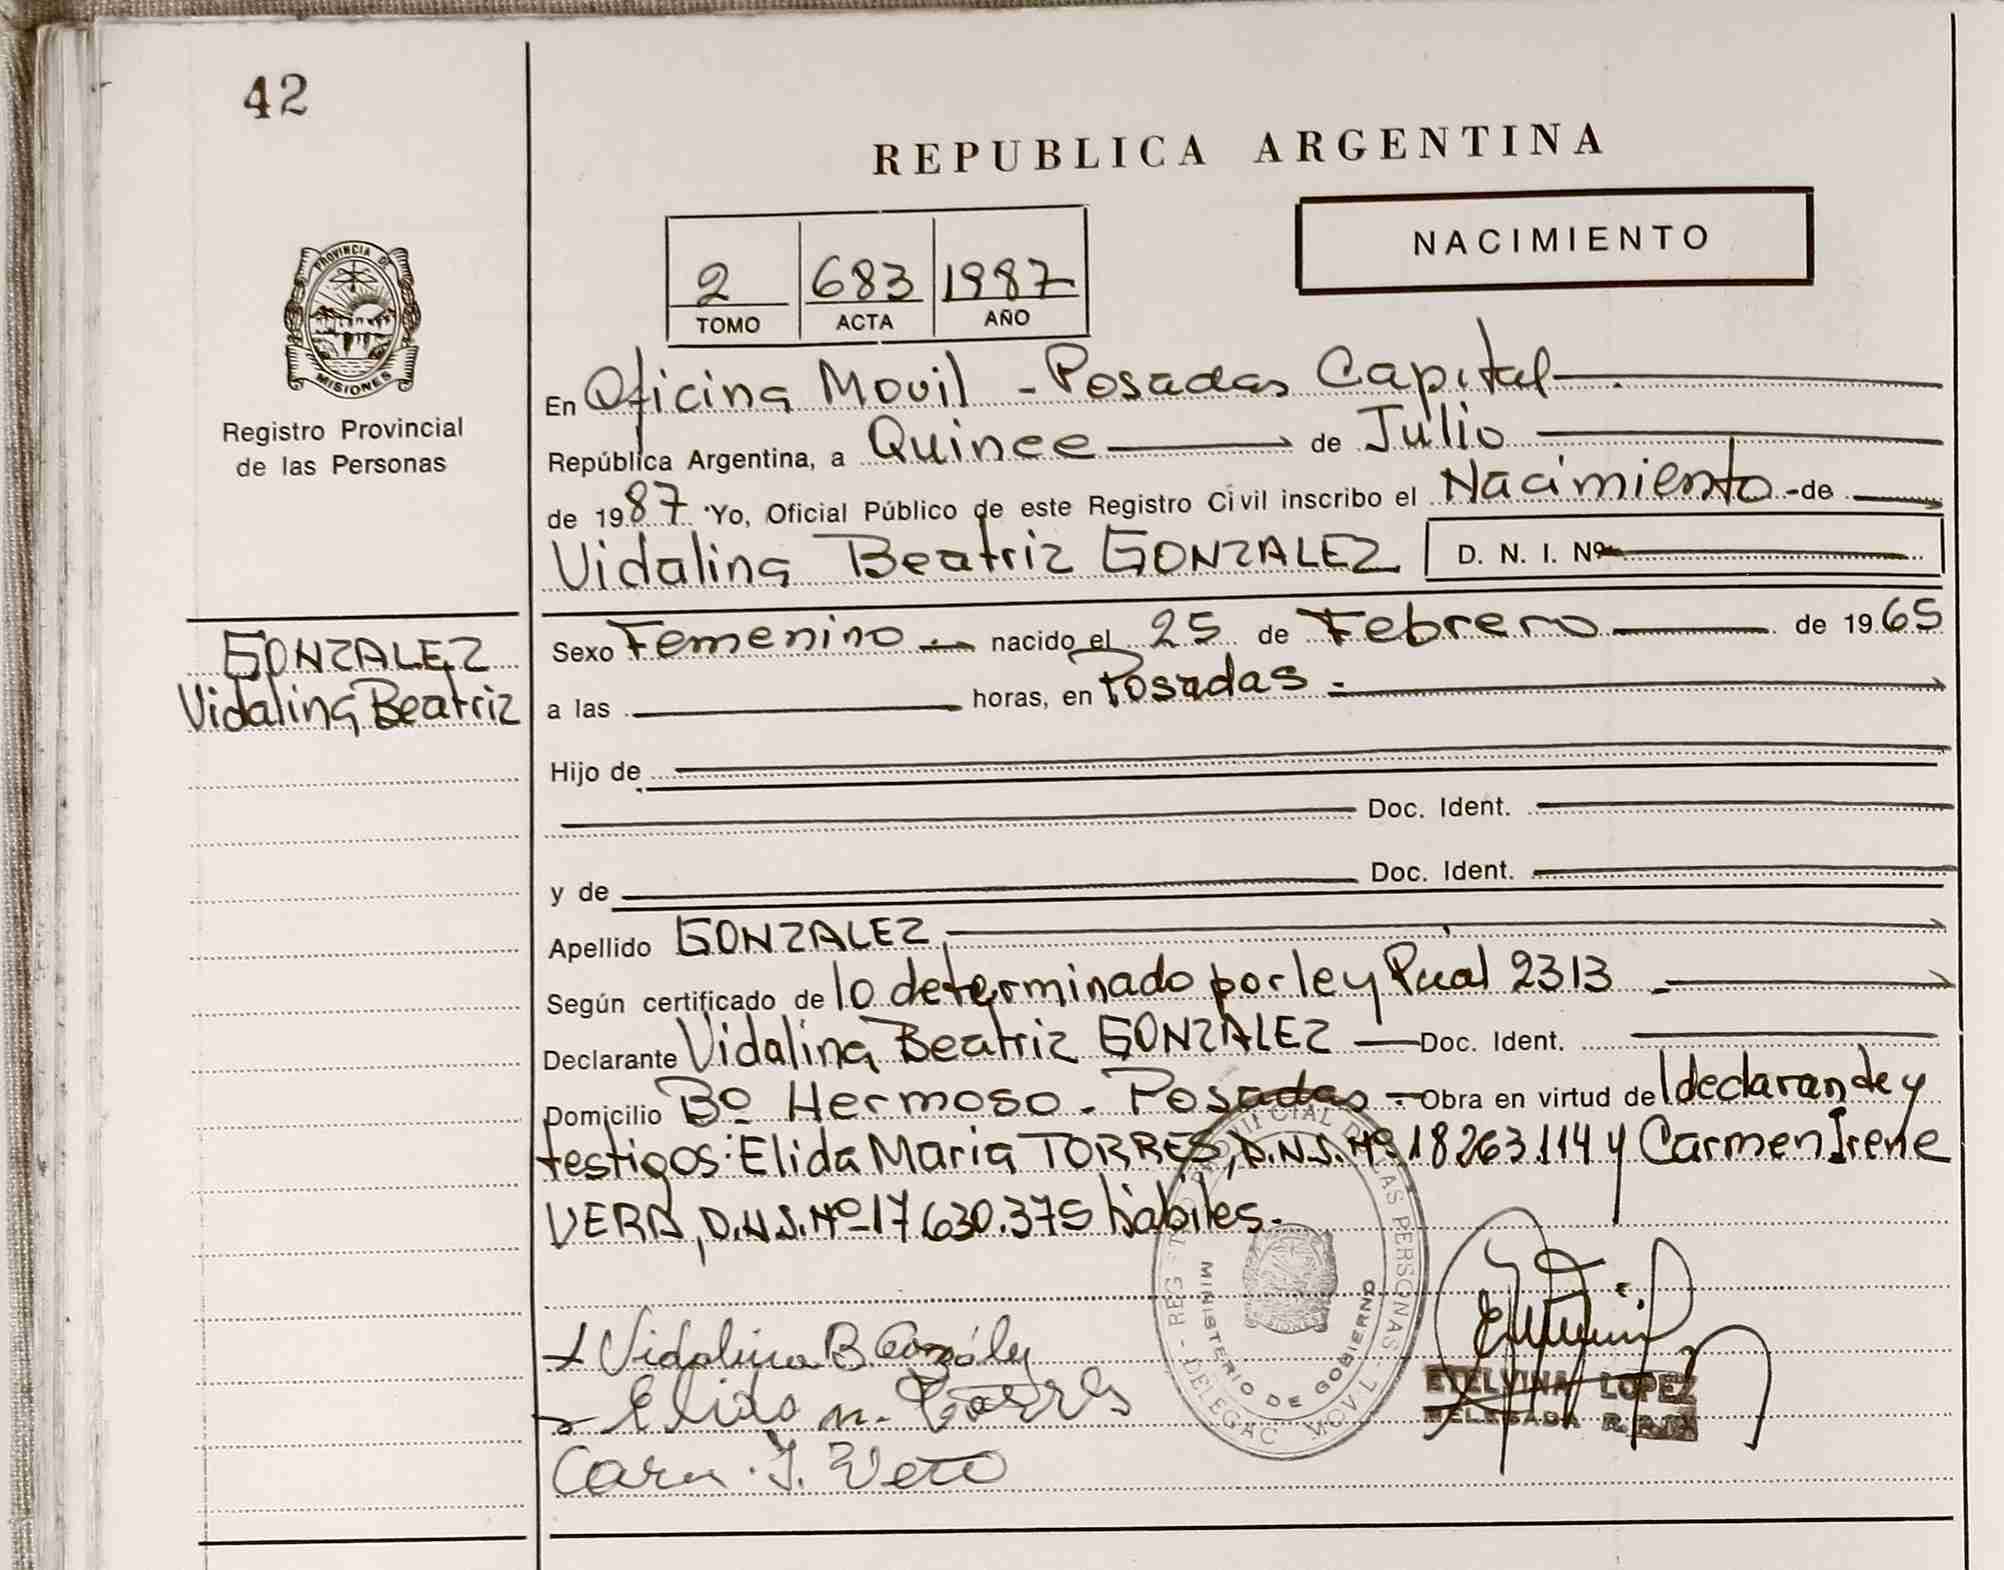 42
REPUBLICA ARGENTINA
NACIMIENTO
2 683 1987
TOMO ACTA AÑO
PROVINCIA DE
MISIONES
Registro Provincial
de las Personas
En Oficina Movil - Posadas Capital
República Argentina, a Quince de Julio
de 1987 Yo, Oficial Público de este Registro Civil inscribo el Nacimiento - de
Vidalina Beatriz GONZALEZ D. N. I. Nº
GONZALEZ
Vidalina Beatriz
Sexo Femenino nacido el 25 de Febrero de 1965
a las horas, en Posadas
Hijo de
Doc. Ident.
y de Doc. Ident.
Apellido GONZALEZ
Según certificado de lo determinado por ley 2313
Declarante Vidalina Beatriz GONZALEZ Doc. Ident.
Domicilio Bº Hermoso - Posadas - Obra en virtud de
testigos: Elida Maria TORRES, D.N.I. Nº 18263.114 y Carmen Irene
VERA, D.N.I. Nº 17630.375 hábiles.
MINISTERIO DE GOBIERNO
Vidalina B. González
Elida M. Torres
ETELVINA LOPEZ
DELEGADA